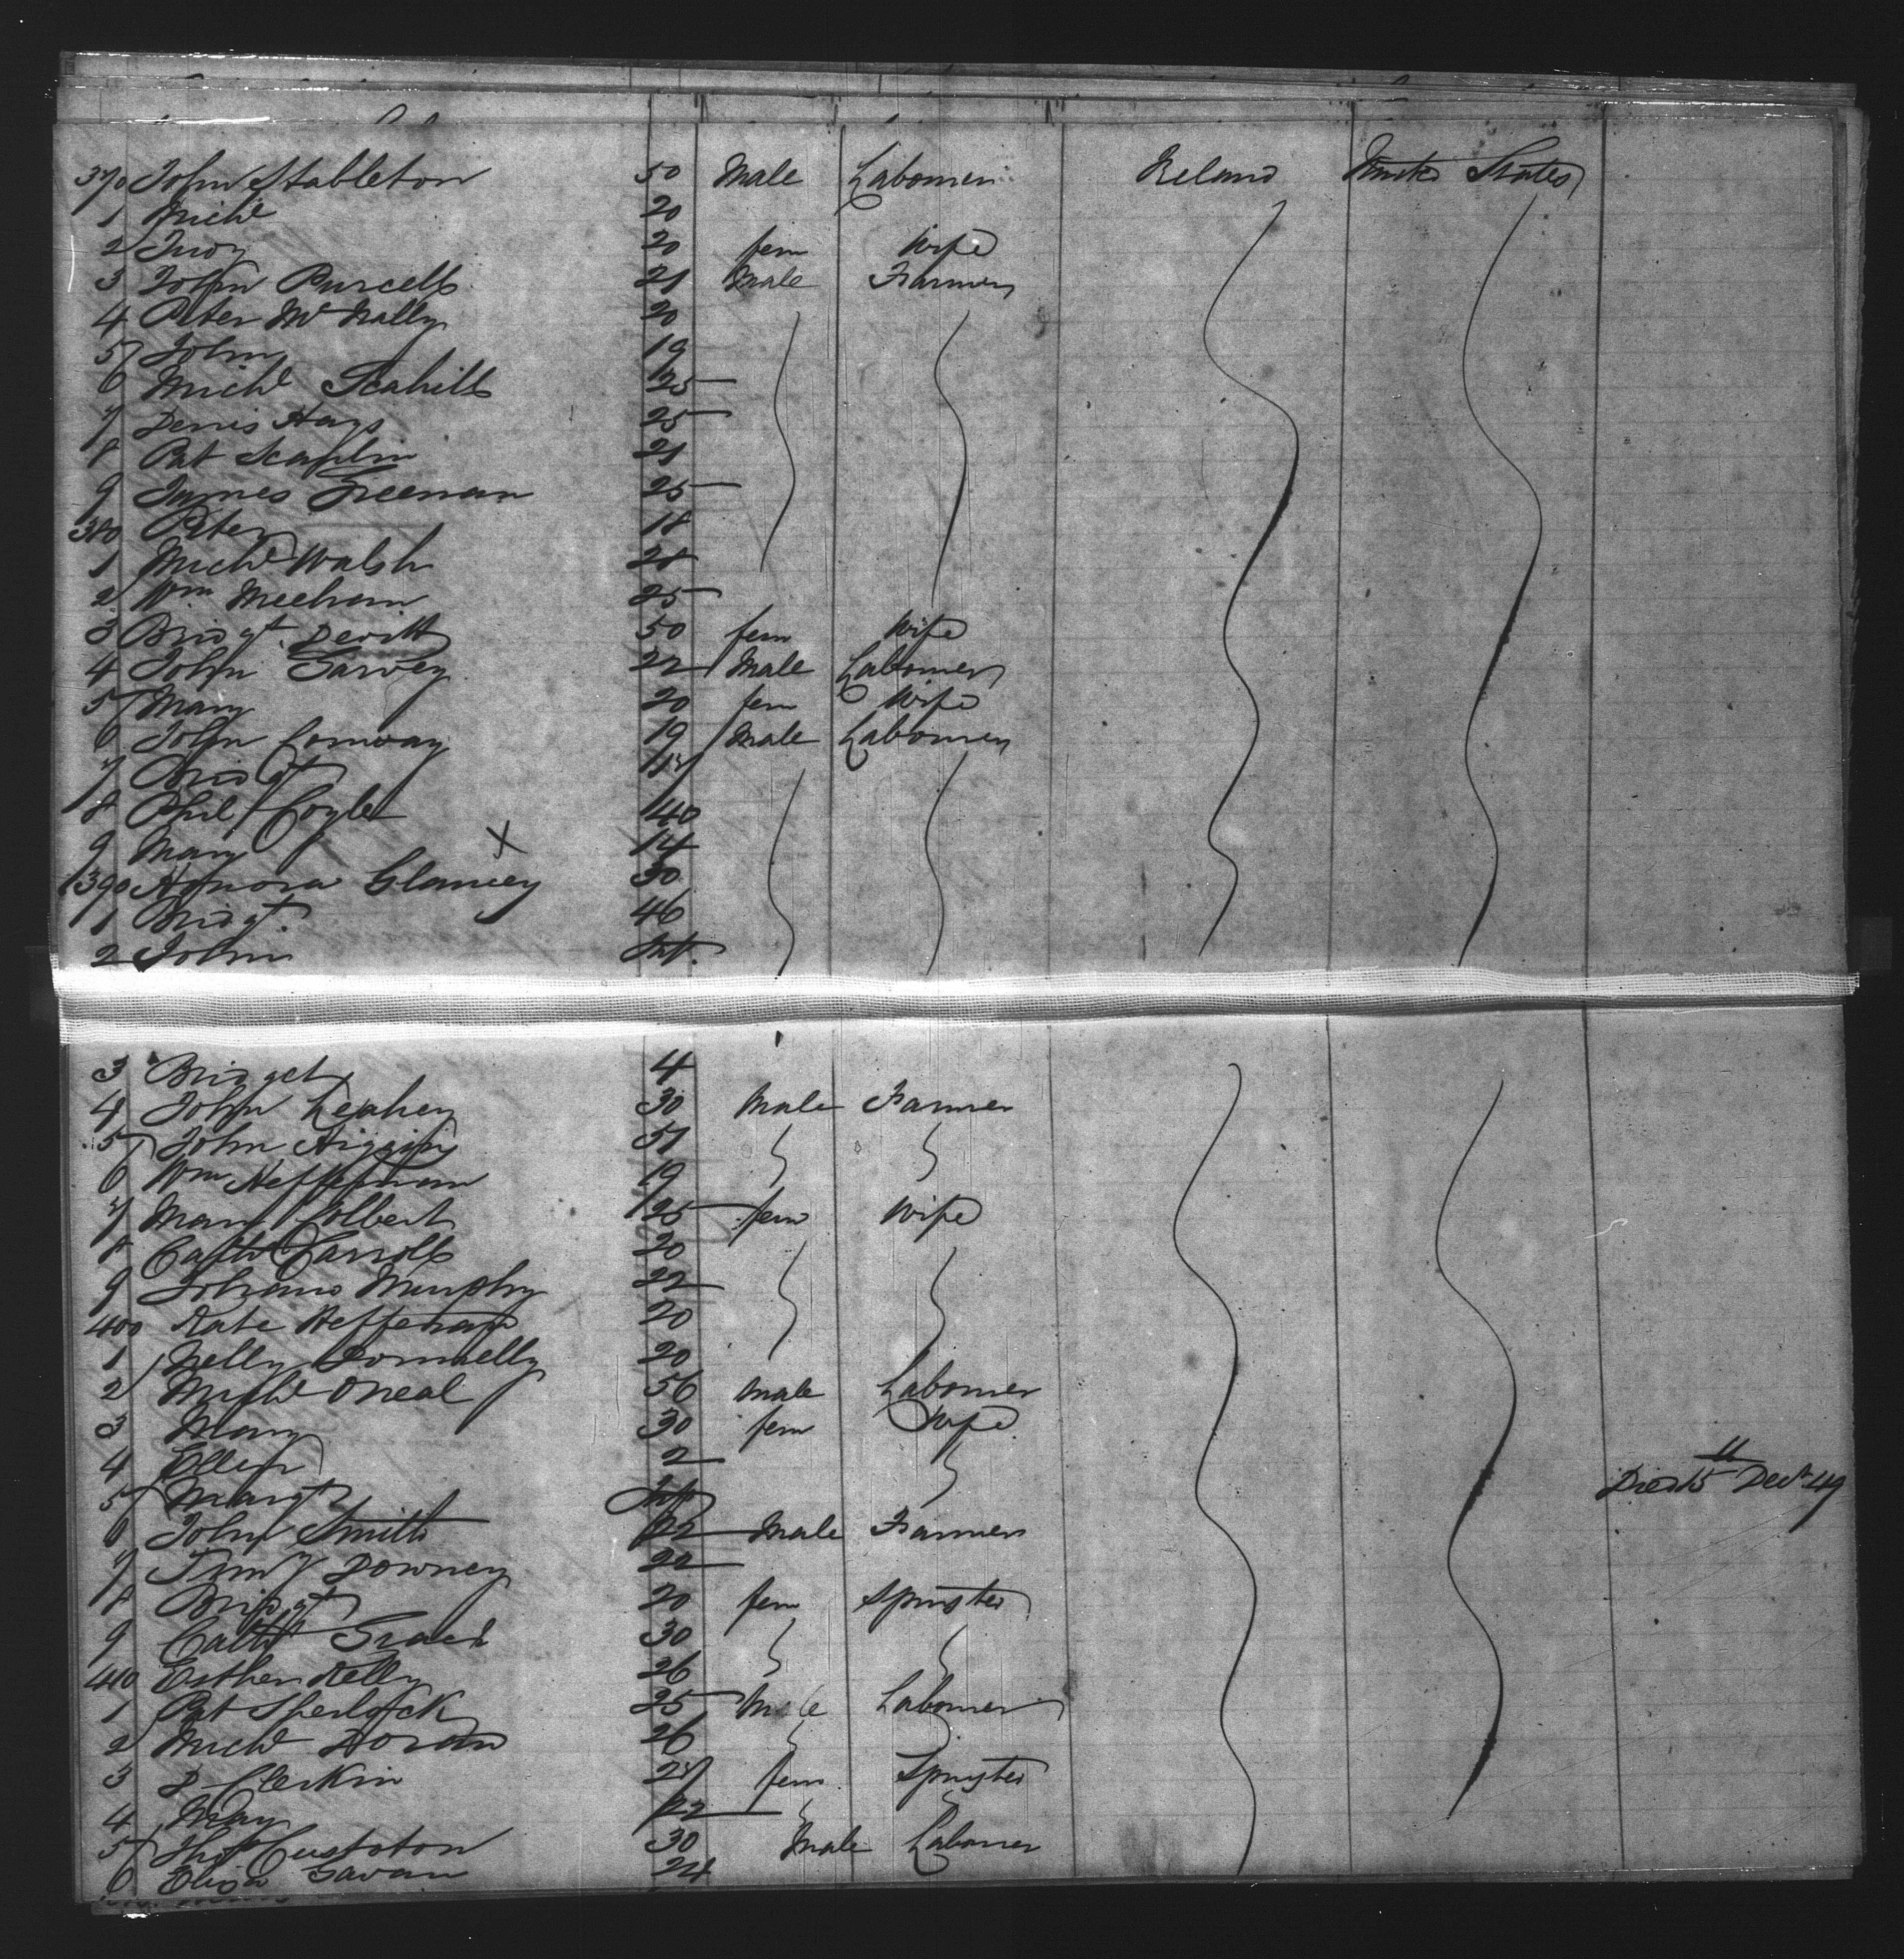 370 John Stableton 50 Male Labourer Ireland United States
1 Michl 20
2 Judy 20 fem Wife
3 John Purcell 21 Male Farmer
4 Peter McNally 20
5 John 19
6 Michl Scahill 25
7 Denis Hays 25
8 Pat Scanlin 21
9 James Freeman 25
380 Peter 18
1 Michl Walsh 28
2 Wm Meeham 25
3 Bridgt. Devitt 50 fem Wife
4 John Garvey 22 Male Labourer
5 Mary 20 fem Wife
6 John Conway 19 Male Labourer
7 Bridgt
8 Phil Coyle 40
9 Mary 14
390 Honora Glancey 30
1 Bridgt. 46
2 John Inft.
3 Bridget 4
4 John Leahey 30 Male Farmer
5 John Higgins 51
6 Wm Heffernan 19
7 Mary Colbert 25 fem Wife
8 Cathe Carroll 20
9 Johana Murphy 22
400 Kate Heffernan 20
1 Nelly Donnelly 20
2 Michl Oneal 56 Male Labourer
3 Mary 30 fem Wife
4 Ellen 2
5 Margt Inft Died 15 Decr 49
6 John Smith 22 Male Farmer
7 Timy Downey 22
8 Bridgt 20 fem Spinster
9 Cathe 30
410 Esther Kelly 26
1 Pat Sherlock 25 Male Labourer
2 Michl Doran 26
3 Clerkin fem Spinster
4 May 22
5 Thos 30 Male Labourer
6 Eliza Gavan 24